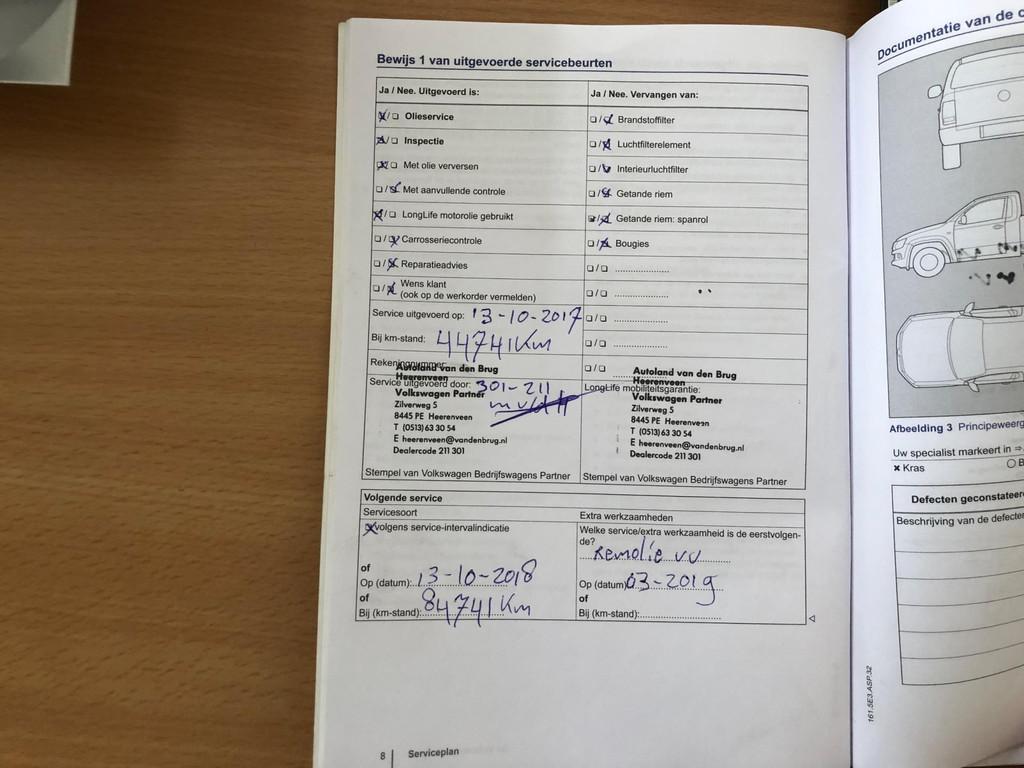 Bewijs 1 van uitgevoerde servicebeurten
Ja / Nee. Uitgevoerd is:
Ja / Nee. Vervangen van:
Olieservice
Brandstoffilter
Inspectie
Luchtfilterelement
Met olie verversen
Interieurluchtfilter
Met aanvullende controle
Getande riem
LongLife motorolie gebruikt
Getande riem: spanrol
Carrosseriecontrole
Bougies
Reparatieadvies
Wens klant
(ook op de werkorder vermelden)
Service uitgevoerd op: 13-10-2017
Bij km-stand: 44741 Km
Rekeningnummer:
Service uitgevoerd door: 301-211
Autoland van den Brug
Heerenveen
Volkswagen Partner
Zilverweg 5
8445 PE Heerenveen
T (0513) 63 30 54
E heerenveen@vandenbrug.nl
Dealercode 211 301
Stempel van Volkswagen Bedrijfswagens Partner
LongLife mobiliteitsgarantie:
Autoland van den Brug
Heerenveen
Volkswagen Partner
Zilverweg 5
8445 PE Heerenveen
T (0513) 63 30 54
E heerenveen@vandenbrug.nl
Dealercode 211 301
Stempel van Volkswagen Bedrijfswagens Partner
Volgende service
Servicesoort
volgens service-intervalindicatie
of
Op (datum): 13-10-2018
of
Bij (km-stand): 84741 Km
Extra werkzaamheden
Welke service/extra werkzaamheid is de eerstvolgen-
de?
Remolie vv
Op (datum) 03-2019
of
Bij (km-stand):
8 | Serviceplan
Documentatie van de
Afbeelding 3 Principeweerg
Uw specialist markeert in
× Kras
Defecten geconstateer
Beschrijving van de defecte
161.5E3.ASP.32